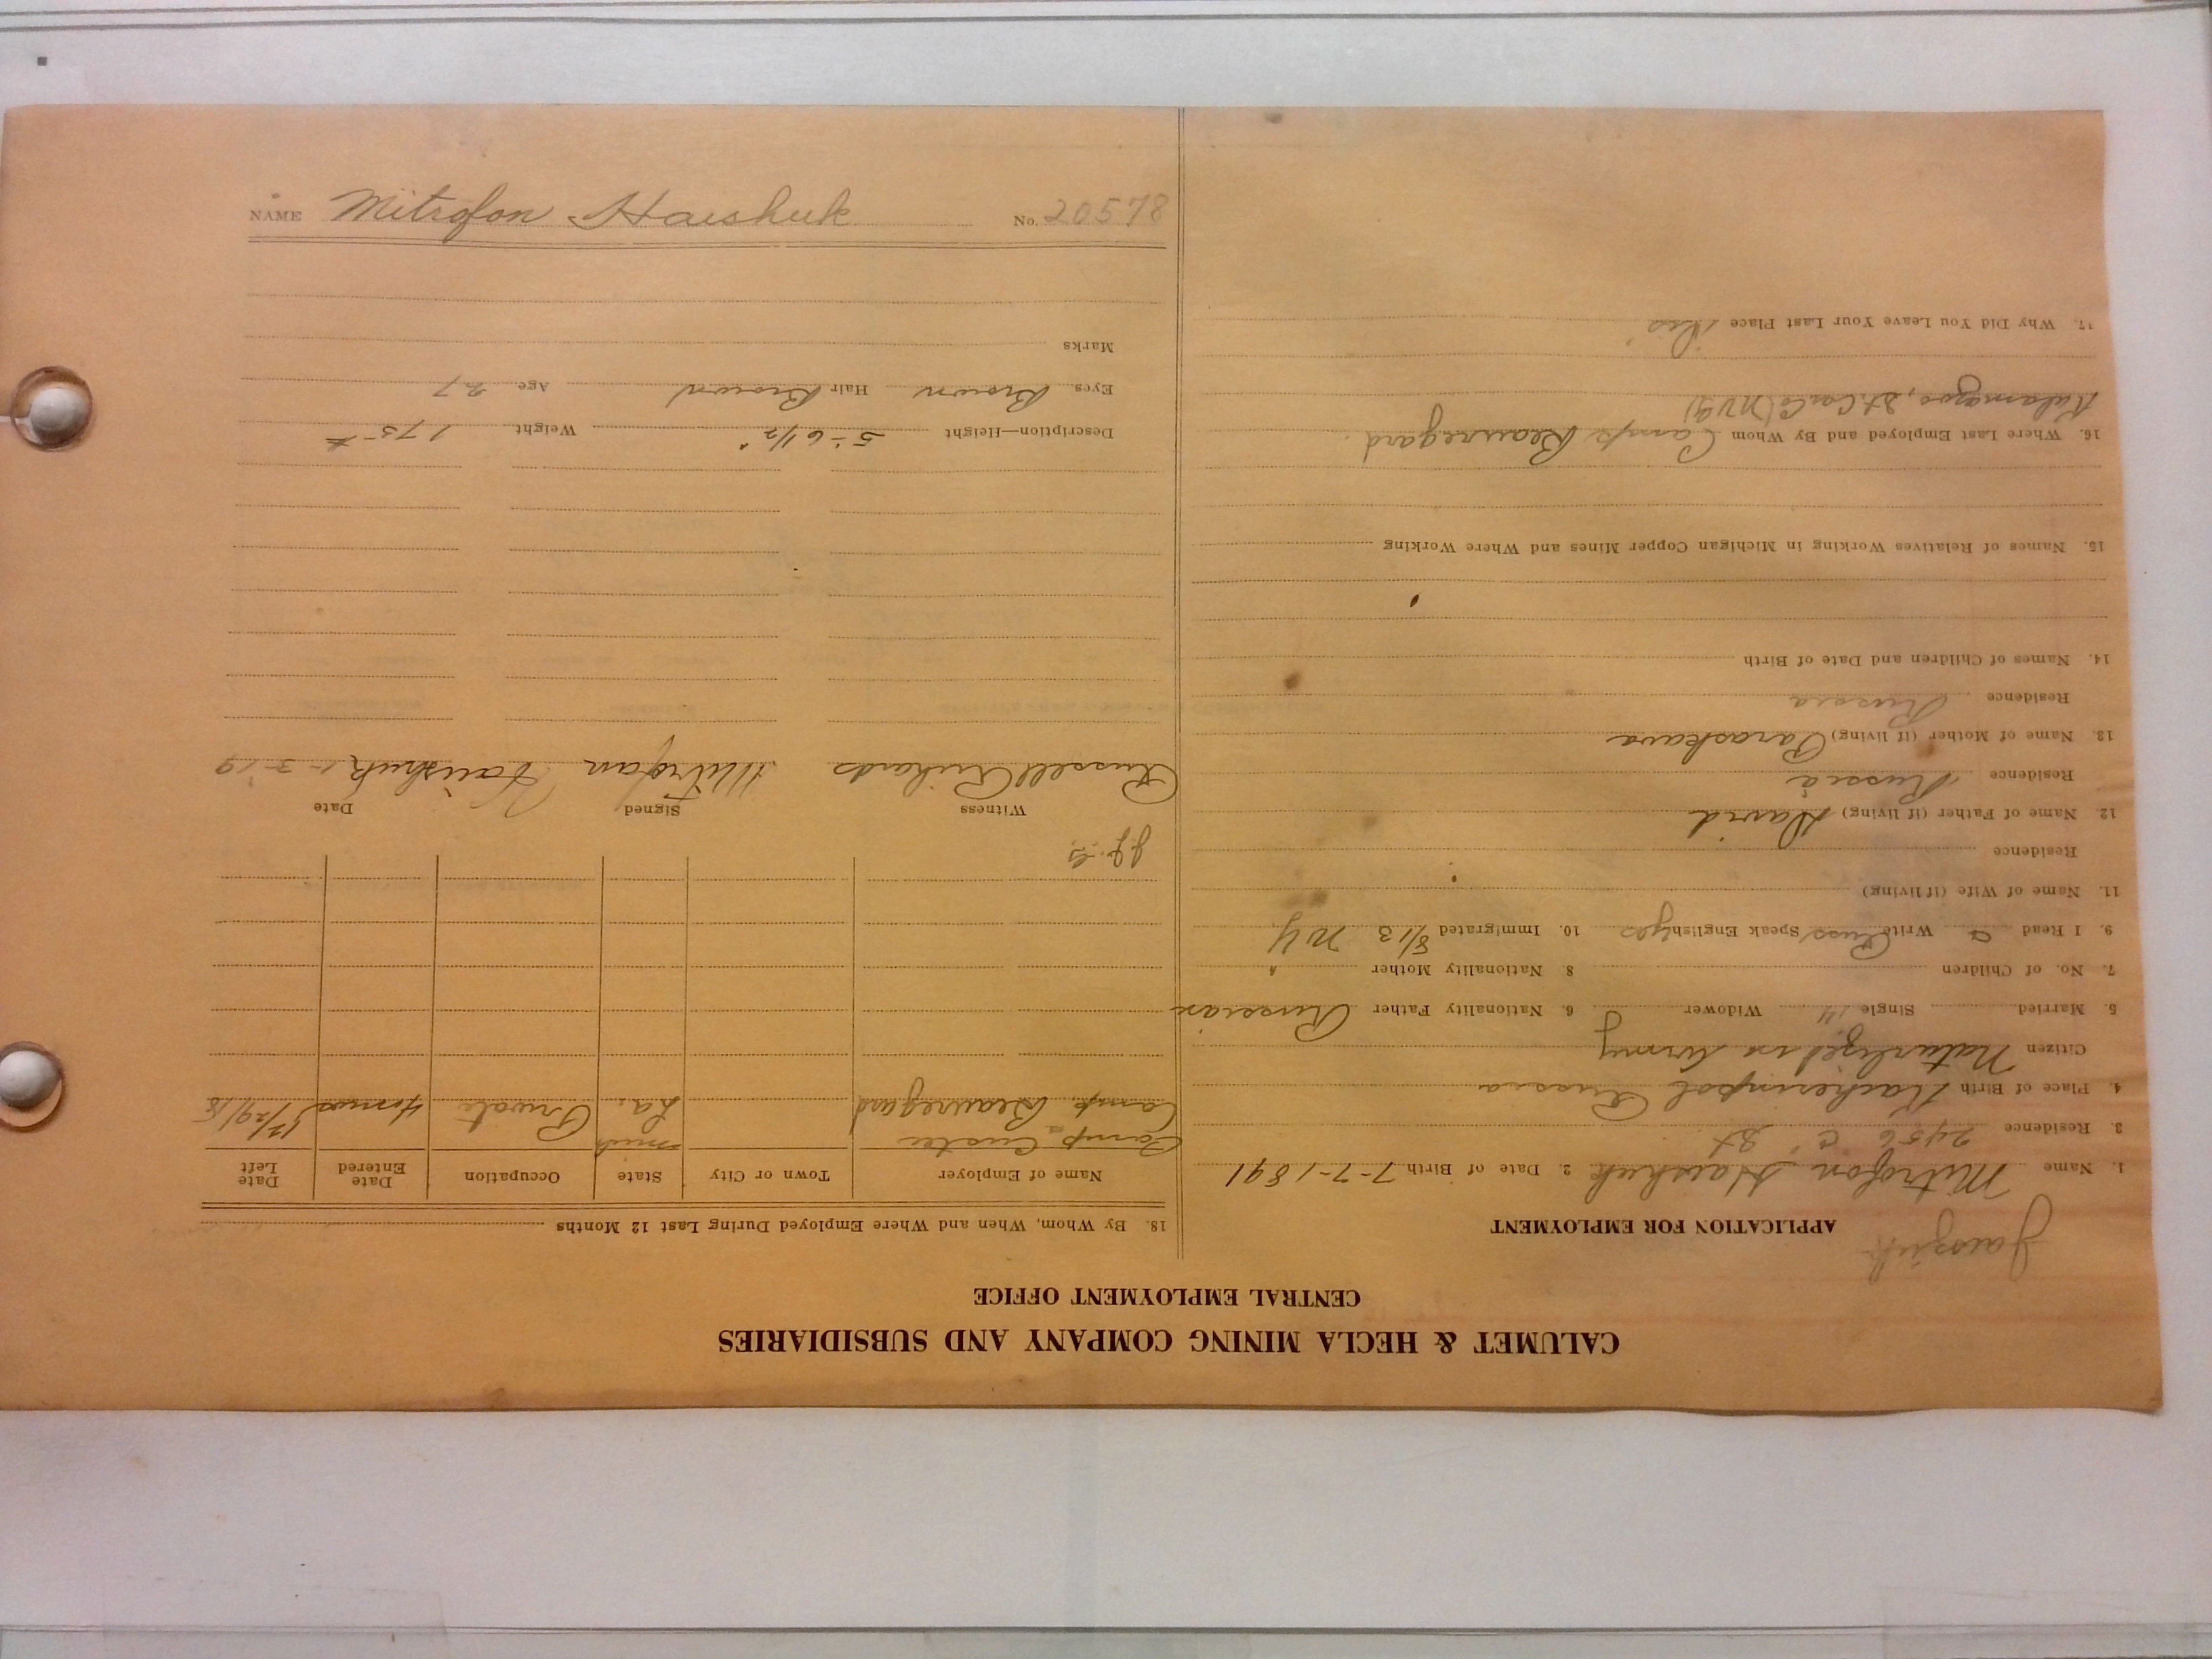 CALUMET & HECLA MINING COMPANY AND SUBSIDIARIES
CENTRAL EMPLOYMENT OFFICE
APPLICATION FOR EMPLOYMENT
1. Name Mitrofon Haishuk 2. Date of Birth 7-7-1891
3. Residence 2456 "C" St
4. Place of Birth Russia
Citizen Naturalized in Army
5. Married Single Widower 6. Nationality Father Russian
7. No. of Children 8. Nationality Mother "
9. I Read & Write Russ Speak English yes 10. Immigrated 8/13 NY
11. Name of Wife (if living)
Residence
12. Name of Father (if living) David
Residence Russia
13. Name of Mother (if living) Paraskava
Residence Russia
14. Names of Children and Date of Birth
15. Names of Relatives Working in Michigan Copper Mines and Where Working
16. Where Last Employed and By Whom Camp Beauregard
Kalamazoo, St. Car Co
17. Why Did You Leave Your Last Place Dis
18. By Whom, When and Where Employed During Last 12 Months
Name of Employer Town or City State Occupation Date Entered Date Left
Camp Custer Mich
Camp Beauregard La. Private 4 mos 12/29/18
Witness Signed Date
Russell Richards Mitrofan Haishuk 1-3-19
Description—Height 5'-6 1/2" Weight 175 #
Eyes Brown Hair Brown Age 27
Marks
NAME Mitrofon Haishuk No. 20578